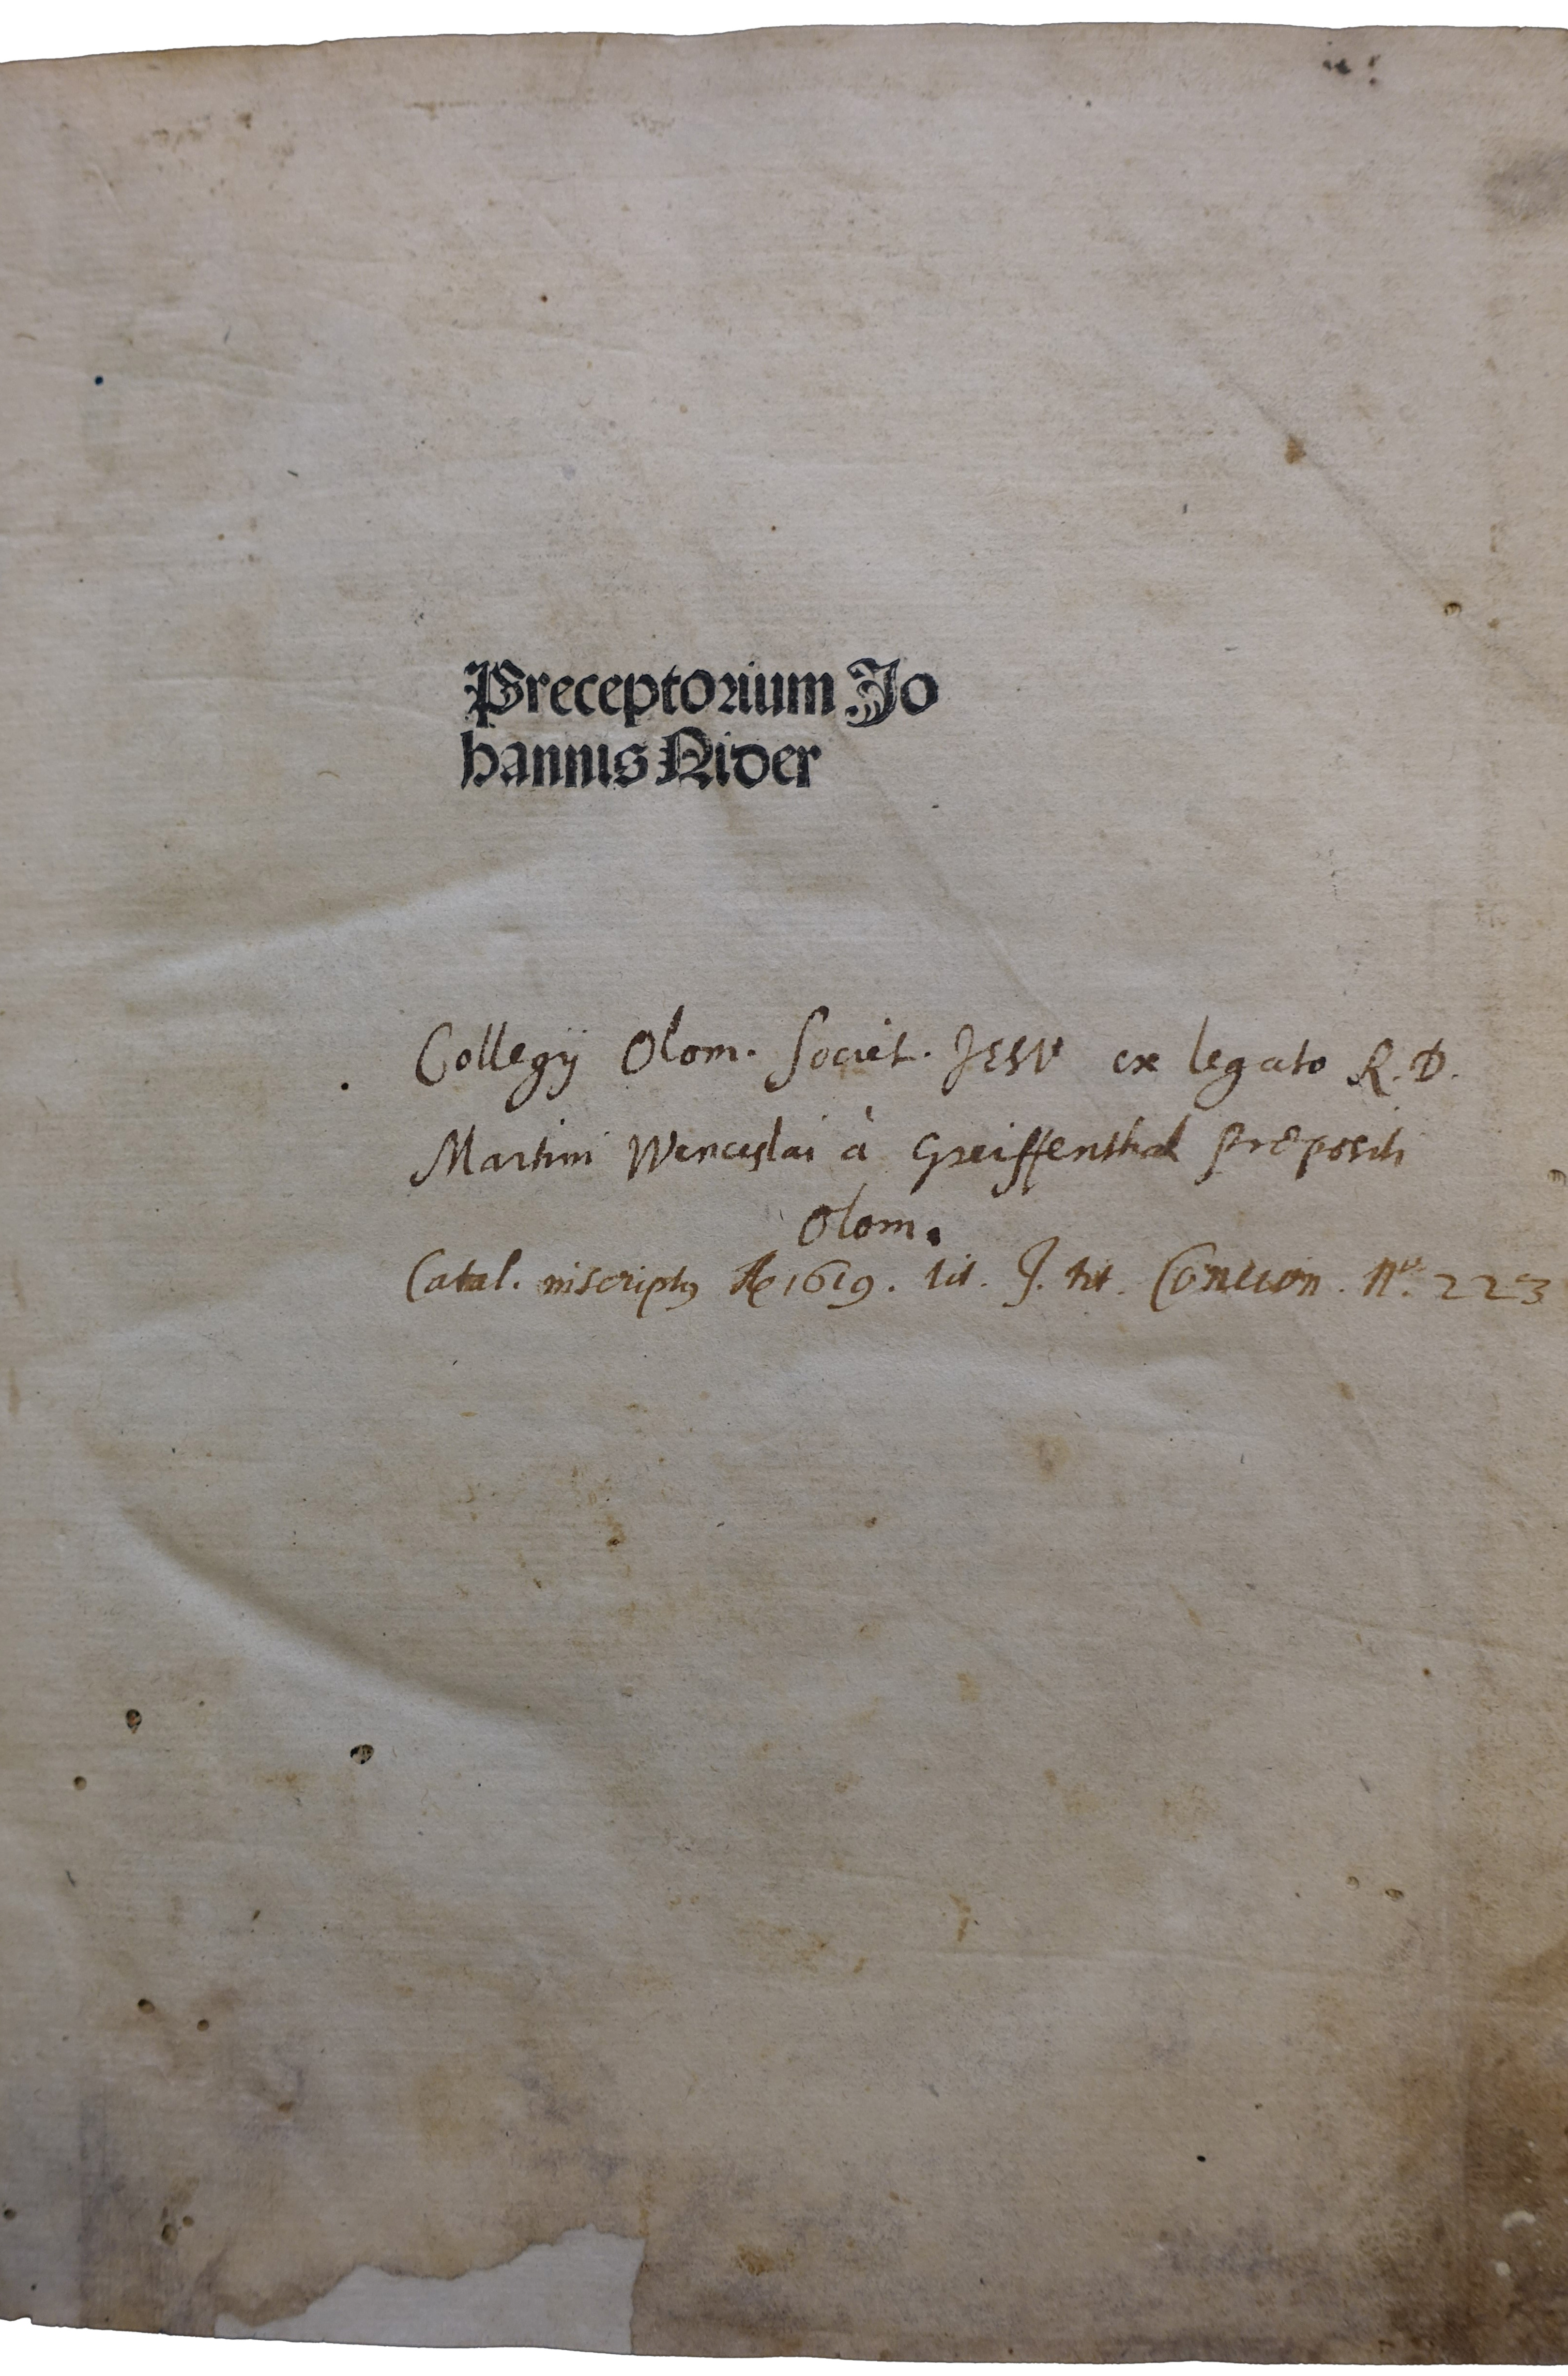 Preceptorium Jo
hannis Nider
Collegij Olom. Societ. JESV ex legato R. D.
Martini Wenceslai à Greiffenthal Præpositi
Olom.
Catal. inscriptus 1619. lit. J. tit. Concion. Nº. 223